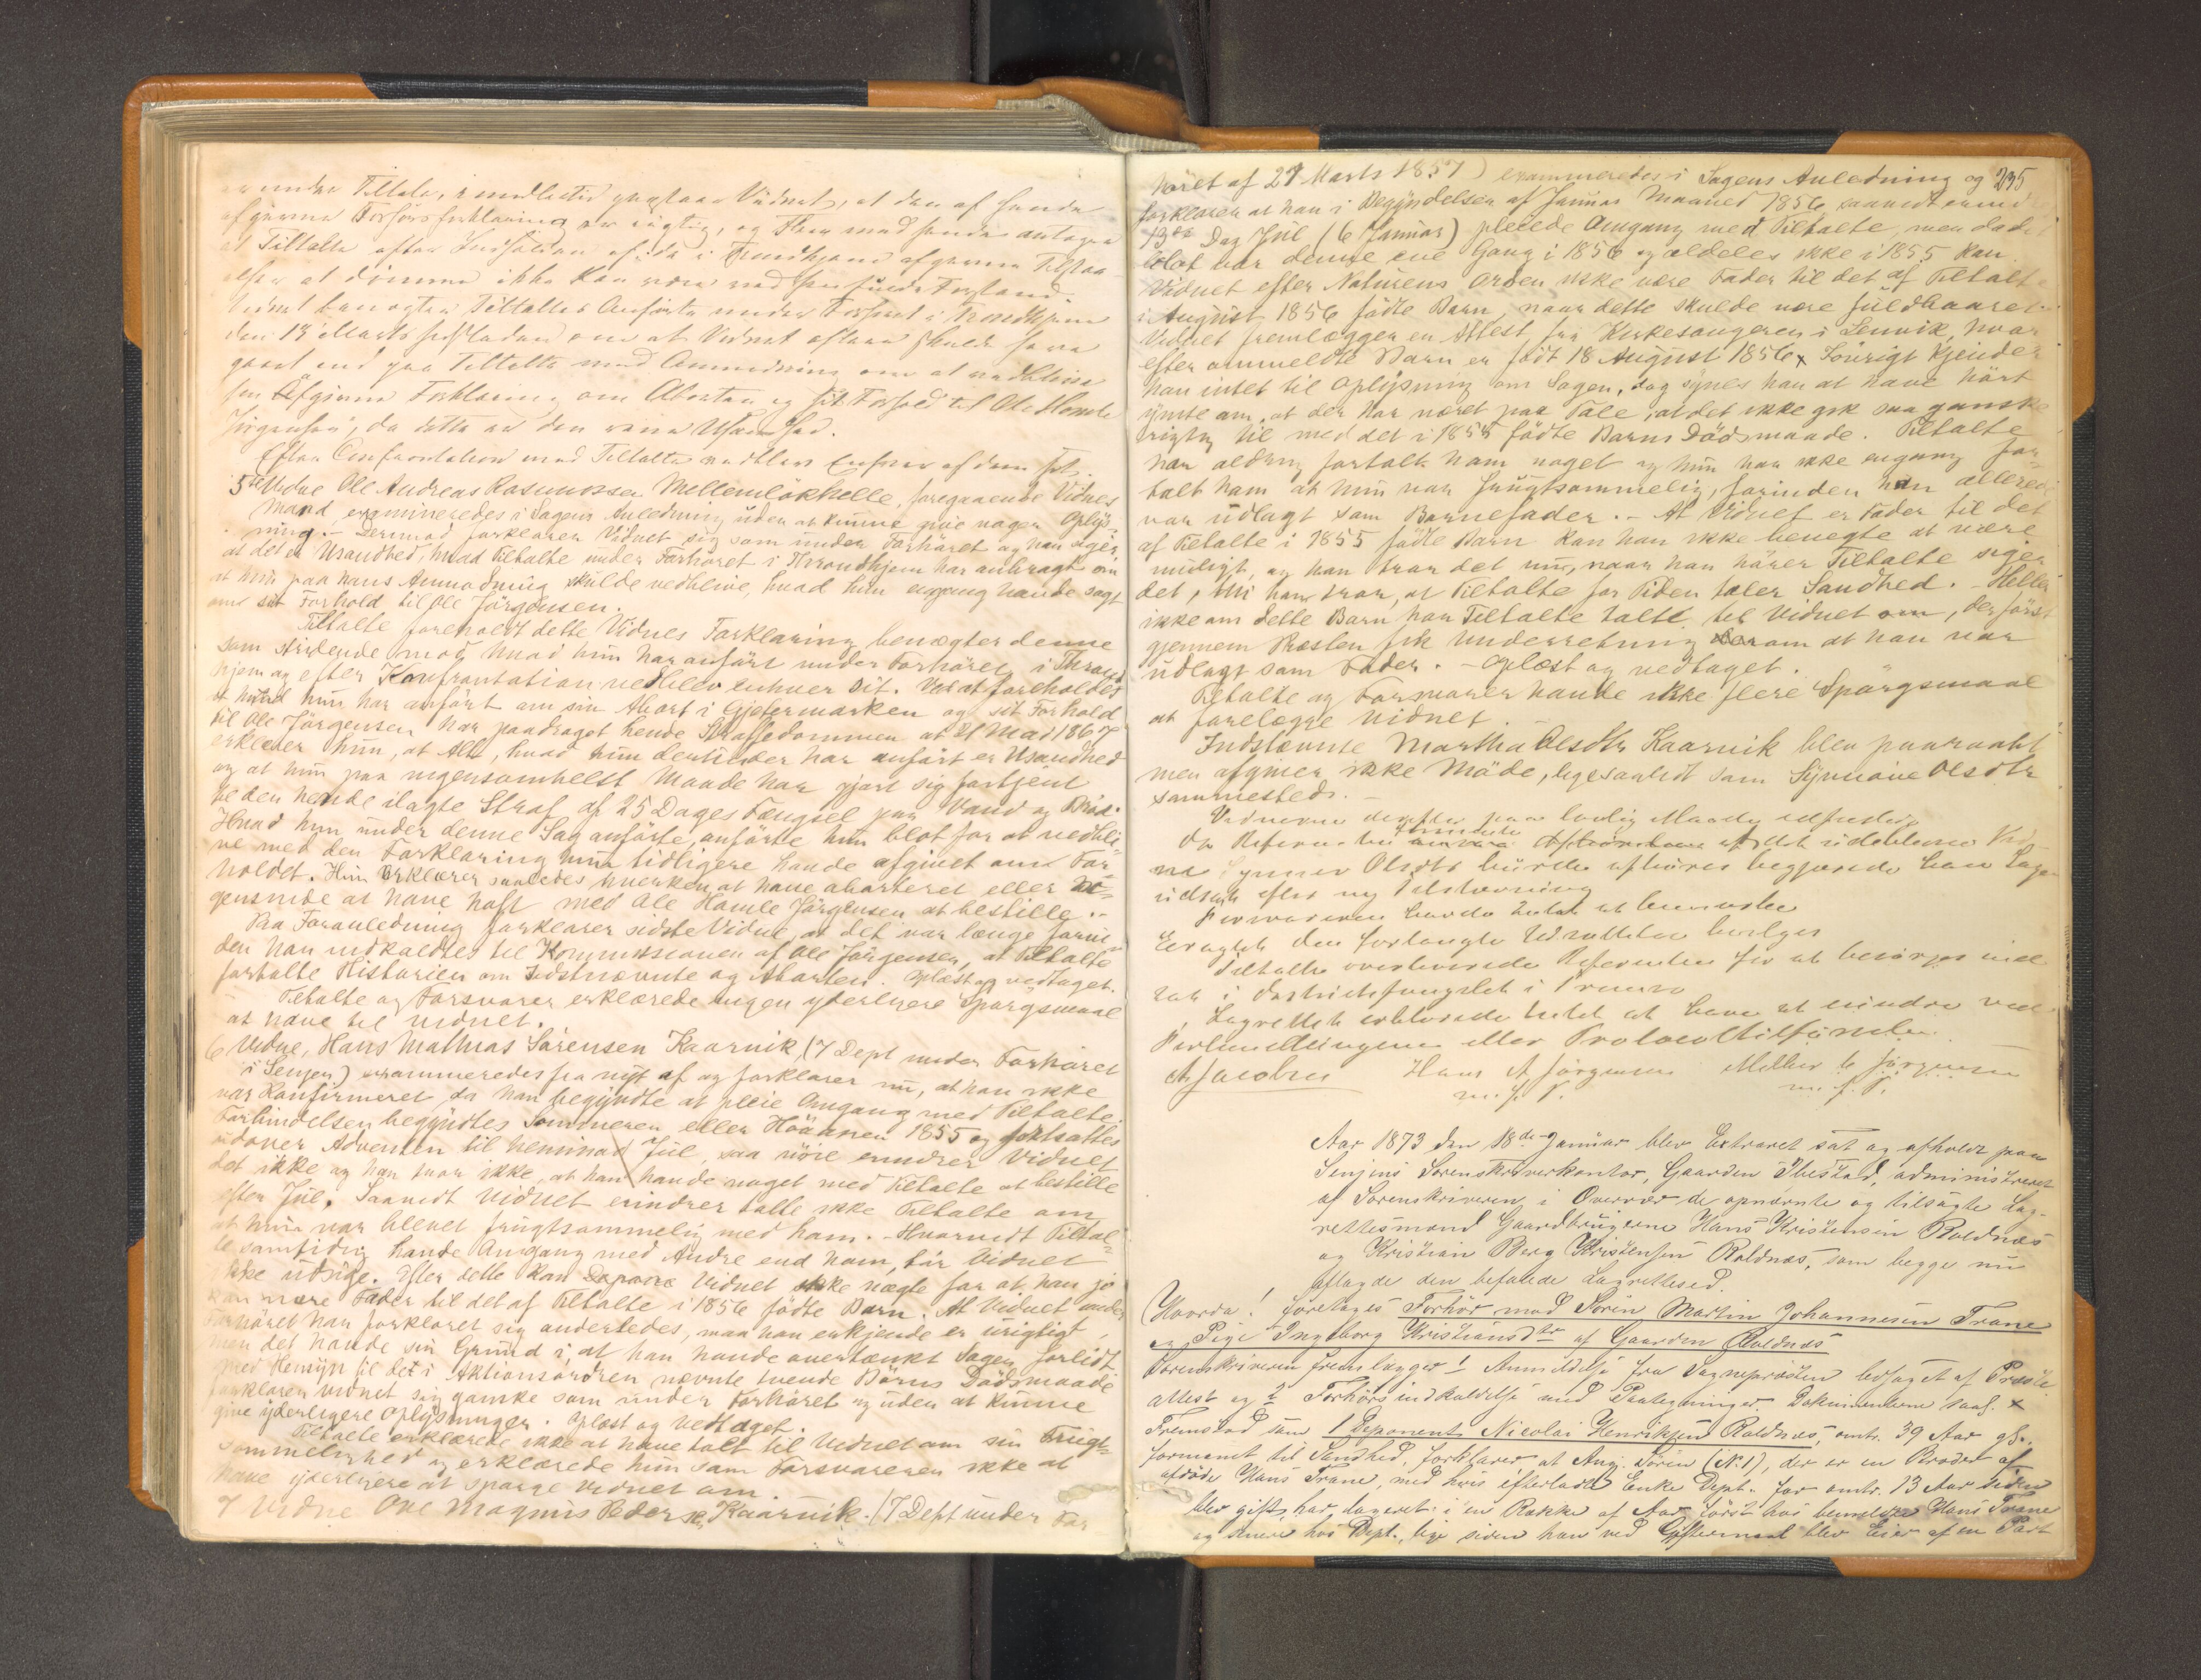 under Tiltale, imidlertid paastaar Vidnet, at den af hende
afgivne Forhørsforklaring er rigtig, og
at Tiltalte efter Indholdet af de i Trondhjem afgivne Tilstaa-
elser at dømme ikke kan være ved sin sunde Forstand.
Vidnet benægter Tiltaltes Anførte under Forhøret i Trondhjem
den 13 Marts om at Vidnet oftere skulde have
gaaet ind paa Tiltalte med Anmodning om at vedblive
sin afgivne Forklaring om Aborten og sit Forhold til Ole Hemle
Jørgensen, da dette er den rene Usandhed.
Efter Confrontation med Tiltalte vedblev Enhver af dem sit.
5te Vidne Ole Andreas Rasmussen Mellemlökhelle, foregaaende Vidnes
Mand, examineredes i Sagens Anledning uden at kunne give nogen Oplys
ning. - Derimod forklarer Vidnet sig som under Forhöret og han siger
at det er Usandhed, hvad Tiltalte under Forhöret i Throndhjem har anbragt om
at hun paa hans Anmodning skulde vedblive, hvad hun engang havde sagt
om sit Forhold til Ole Jörgensen.
Tiltalte foreholdt dette Vidnes Forklaring benægter denne
som stridende mod hvad hun har anfört under Forhöret i Thrond
hjem og efter Konfrontation vedblev enhver sit. Ved at foreholdes
at hvad hun har anfört om sin Abort i Gjetermarken og sit Forhold
til Ole Jörgensen har paadraget hende Straffedommen af 21 Mai 1867
erklærer hun, at Alt, hvad hun dentinder har anfört er Usandhed
og at hun paa nogensomhelst Maade har gjort sig fortjent
til den hende ilagte Straf af 25 Dages Fængsel paa Vand og Bröd.
Hvad hun under denne Sag anförte, anförte hun blot for at vedbli
ve med den Forklaring hun tidligere havde afgivet om For
holdet. Hun erklærer saaledes hverken at have aborteret eller no
gensinde at have haft med Ole Hamle Jörgensen at bestille. -
Paa Foranledning forklarer sidste Vidne, at det var længe forin
den han indkaldtes til Kommissionen af Ole Jörgensen, at Tiltalte
fortalte Historien om Indstævnte og Aborten. Oplæst og vedtaget.
Tiltalte og Forsvarer erklærede ingen yderligere Spörgsmaal
at have til Vidnet.
6 Vidne, Hans Mathias Sörensen Kaarvik, (7 Dept under Forhöret
i Senjen) examineredes fra nyt af og forklarer nu, at han ikke
var Konfirmeret da han begyndte at pleie Omgang med Tiltalte.
Forbindelsen begyndtes Sommeren eller Höannen 1855 og fortsattes
udover Adventen til henimod Jul, saa vöre erindrer Vidnet
det ikke og han tror ikke, at han havde noget med Tiltalte at bestille
efter Jul. Saavidt Vidnet erindrer talte ikke Tiltalte om
at hun var blevet frugtsommelig med ham. - Hvorvidt Tiltal
te samtidig havde Omgang med Andre end ham, tör Vidnet
ikke udsige. Efter dette kan Vidnet ikke nægte for at han jo
kan være Fader til det af Tiltalte i 1856 födte Barn. At Vidnet under
Forhöret har forklaret sig anderledes, maa han erkjende er urigtigt,
men det havde sin Grund i, at han havde overtænkt Sagen forlidt
Med Hensyn til det i Aktionsordren nævnte tvende Börns Dödsmaade
forklarer Vidnet sig ganske som under Forhöret og uden at kunne
give yderligere Oplysninger. Oplæst og Vedtaget.
Tiltalte erklærede ikke at have talt til Vidnet om sin Frugt-
sommelighed og erklærede hun som Forsvareren ikke at
have yderligere at spørge Vidnet om.
7 Vidne Ole Magnus Pedersen Kaarvik. (7 Dept under For
235
höret af 27 Marts 1857) examineredes i Sagens Anledning og
forklarer at han i Begyndelsen af Januar Maaned 1856 saavidt erindres
13de Dag Jul (6 Januar) pleiede Omgang med Tiltalte, men da det
blot var denne ene Gang i 1856 og aldeles ikke i 1855 kan
Vidnet efter Naturens Orden ikke være Fader til det af Tiltalte
i August 1856 födte Barn, naar dette skulde være fuldbaaret.
Vidnet fremlægger en Attest fra Kirkesangeren i Lenvik, hvor
efter ommeldte Barn er födt 18 August 1856 x Iövrigt kjender
han intet til Oplysning om Sagen, dog synes han at have hört
ymte om, at der har været paa Tale, at det ikke gik saa ganske
rigtig til med det i 1855 födte Barns Dödsmaade. Tiltalte
har aldrig fortalt ham noget og hun har ikke engang for
talt ham at hun var frugtsommelig, forinden han allerede
var udlagt som Barnefader. - At Vidnet er Fader til det
af Tiltalte i 1855 födte Barn kan han ikke benegte at være
muligt, og han tror det nu, naar han hörer Tiltalte siger
det, thi han tror, at Tiltalte for Tiden taler Sandhed. - Heller
ikke om dette Barn har Tiltalte talt til Vidnet om, der först
gjennem Præsten fik Underretning derom at han var
udlagt som Fader. - Oplæst og vedtaget.
Tiltalte og Forsvarer havde ikke flere Spörgsmaal
at forelægge Vidnet.
Indstævnte Martha Olsdtr Kaarvik blev paaraabt
men afgiver ikke Möde, ligesaalidt som Synnöve Olsdtr
sammesteds. -
Vidnerne derefter paa lovlig Maade
Da Referenten formente Afhørelsen af det udeblevne Vid
ne Synnøv Olsdtr burde afhøres begjærede han Sagen
udsat efter ny Indstævning
Forsvareren havde Intet at bemærke
Eragtet den forlangte Udsættelse bevilges
Tiltalte overleveredes Referenten for at besørges ind
sat i Distriktsfængslet i Tromsø
Lagrettet erklærede Intet at have at erindre ved
Forhandlingerne eller Protocoltilførslen.
A Jacobsen Hans A Jørgensen Mikker C Jørgensen
m. f. P. m. f. P.
Aar 1873 den 18de Januar blev Extraret sat og afholdt paa
Senjens Sorenskriverkontor, Gaarden Thustad, administreret
af Sorenskriveren i Overvær de opnævnte og tilsagte Lag-
rettesmænd Gaardbrugerne Hans Kristensen Roldnæs
og Kristian Berg Kristensen Roldnæs, som begge nu
aflagde den befalede Lagrettesed.
Hvorda! foretoges Forhör mod Sörin Martin Johannesen Trane
og Pige Ingeborg Kristiansdtr af Gaarden Roldnæs
Sorenskriveren fremlægger 1 Anmeldelse fra Sognepræsten ledsaget af Præste
attest og 2 Forhörsindkaldelse med Paategninger. Dokumenterne saal. x
Fremstod som 1 Deponent Nicolai Henriksen Roldnæs, omtr. 39 Aar gl.,
formanet til Sandhed, forklarer at Ang. Sörin (No 1), der er en Broder af
afdöde Hans Trane, med hvis efterladte Enke Dept. for omtr. 13 Aar siden
blev gift, har logeret i en Række af Aar først hos bemeldte Hans Trane
og senere hos Dept., lige siden han ved Giftermaal blev Eier af en Part